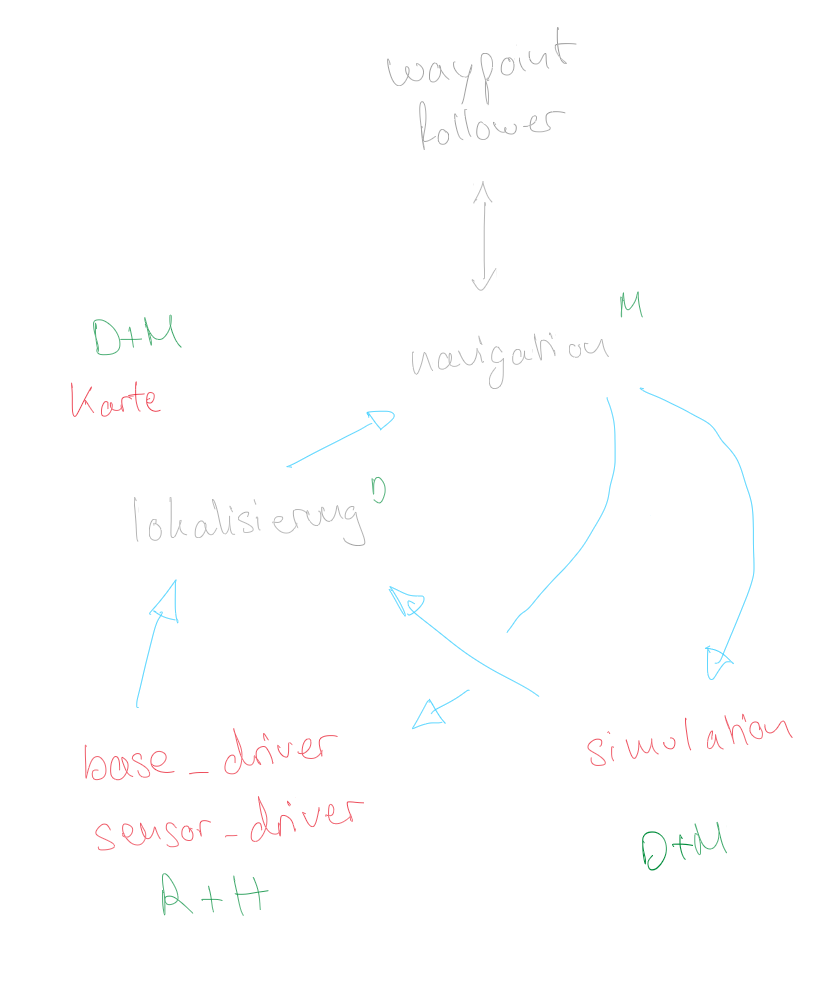 waypoint
follower
M
navigation
D+M
Karte
D
lokalisierung
base_driver
sensor_driver
R+H
simulation
D+M